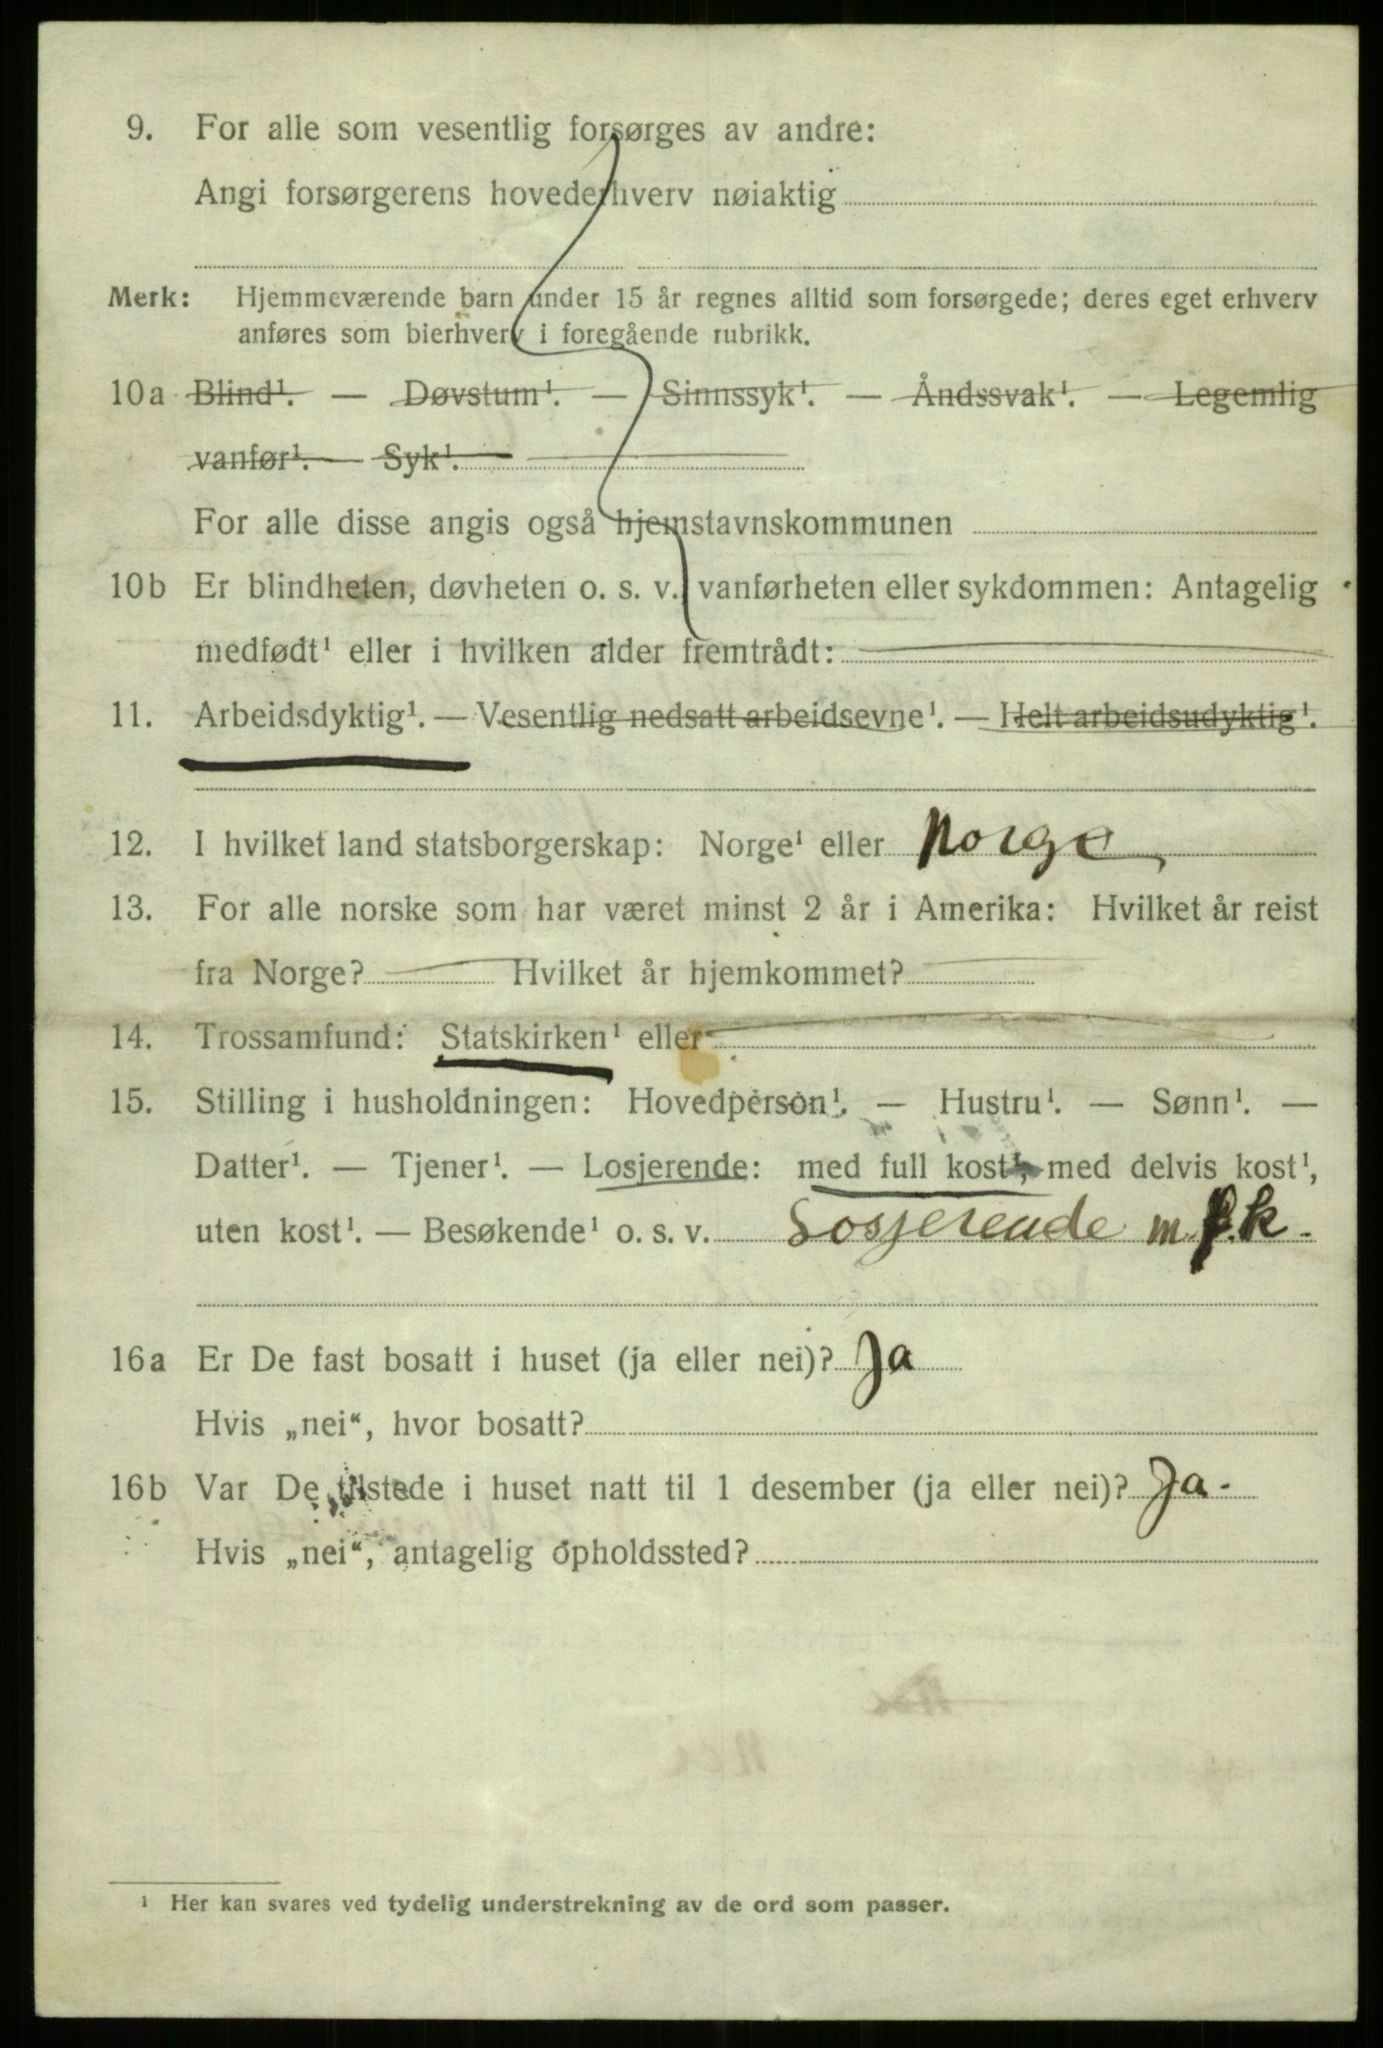 9. For alle som vesentlig forsørges av andre:
Angi forsørgerens hovederhverv nøiaktig
Merk: Hjemmeværende barn under 15 år regnes alltid som forsørgede; deres eget erhverv
anføres som bierhverv i foregående rubrikk.
10a Blind¹. — Døvstum¹. — Sinnssyk¹. — Åndssvak¹. — Legemlig
vanfør¹. — Syk¹.
For alle disse angis også hjemstavnskommunen
10b Er blindheten, døvheten o. s. v., vanførheten eller sykdommen: Antagelig
medfødt¹ eller i hvilken alder fremtrådt:
11. Arbeidsdyktig¹. — Vesentlig nedsatt arbeidsevne¹. — Helt arbeidsudyktig¹.
12. I hvilket land statsborgerskap: Norge¹ eller Norge
13. For alle norske som har været minst 2 år i Amerika: Hvilket år reist
fra Norge? Hvilket år hjemkommet?
14. Trossamfund: Statskirken¹ eller
15. Stilling i husholdningen: Hovedperson¹. — Hustru¹. — Sønn¹. —
Datter¹. — Tjener¹. — Losjerende: med full kost¹, med delvis kost¹,
uten kost¹. — Besøkende¹ o. s. v. Losjerende m.f.k.
16a Er De fast bosatt i huset (ja eller nei)? Ja
Hvis „nei“, hvor bosatt?
16b Var De tilstede i huset natt til 1 desember (ja eller nei)? Ja.
Hvis „nei“, antagelig opholdssted?
¹ Her kan svares ved tydelig understrekning av de ord som passer.